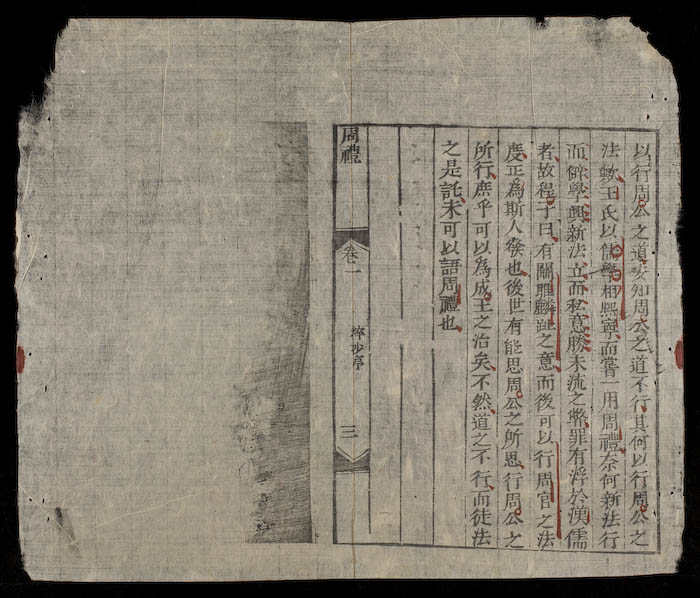 以行周公之道安知周公之道不行其何以行周公之
法歟王氏以儒學相熙寧而嘗一用周禮奈何新法行
而僻學興新法立而私意勝末流之弊罪有浮於漢儒
者故程子曰有關雎麟趾之意而後可以行周官之法
度正為斯人發也後世有能思周公之所思行周公之
所行庶乎可以為成王之治矣不然道之不行而徒法
之是託未可以語周禮也
周禮
卷一
三